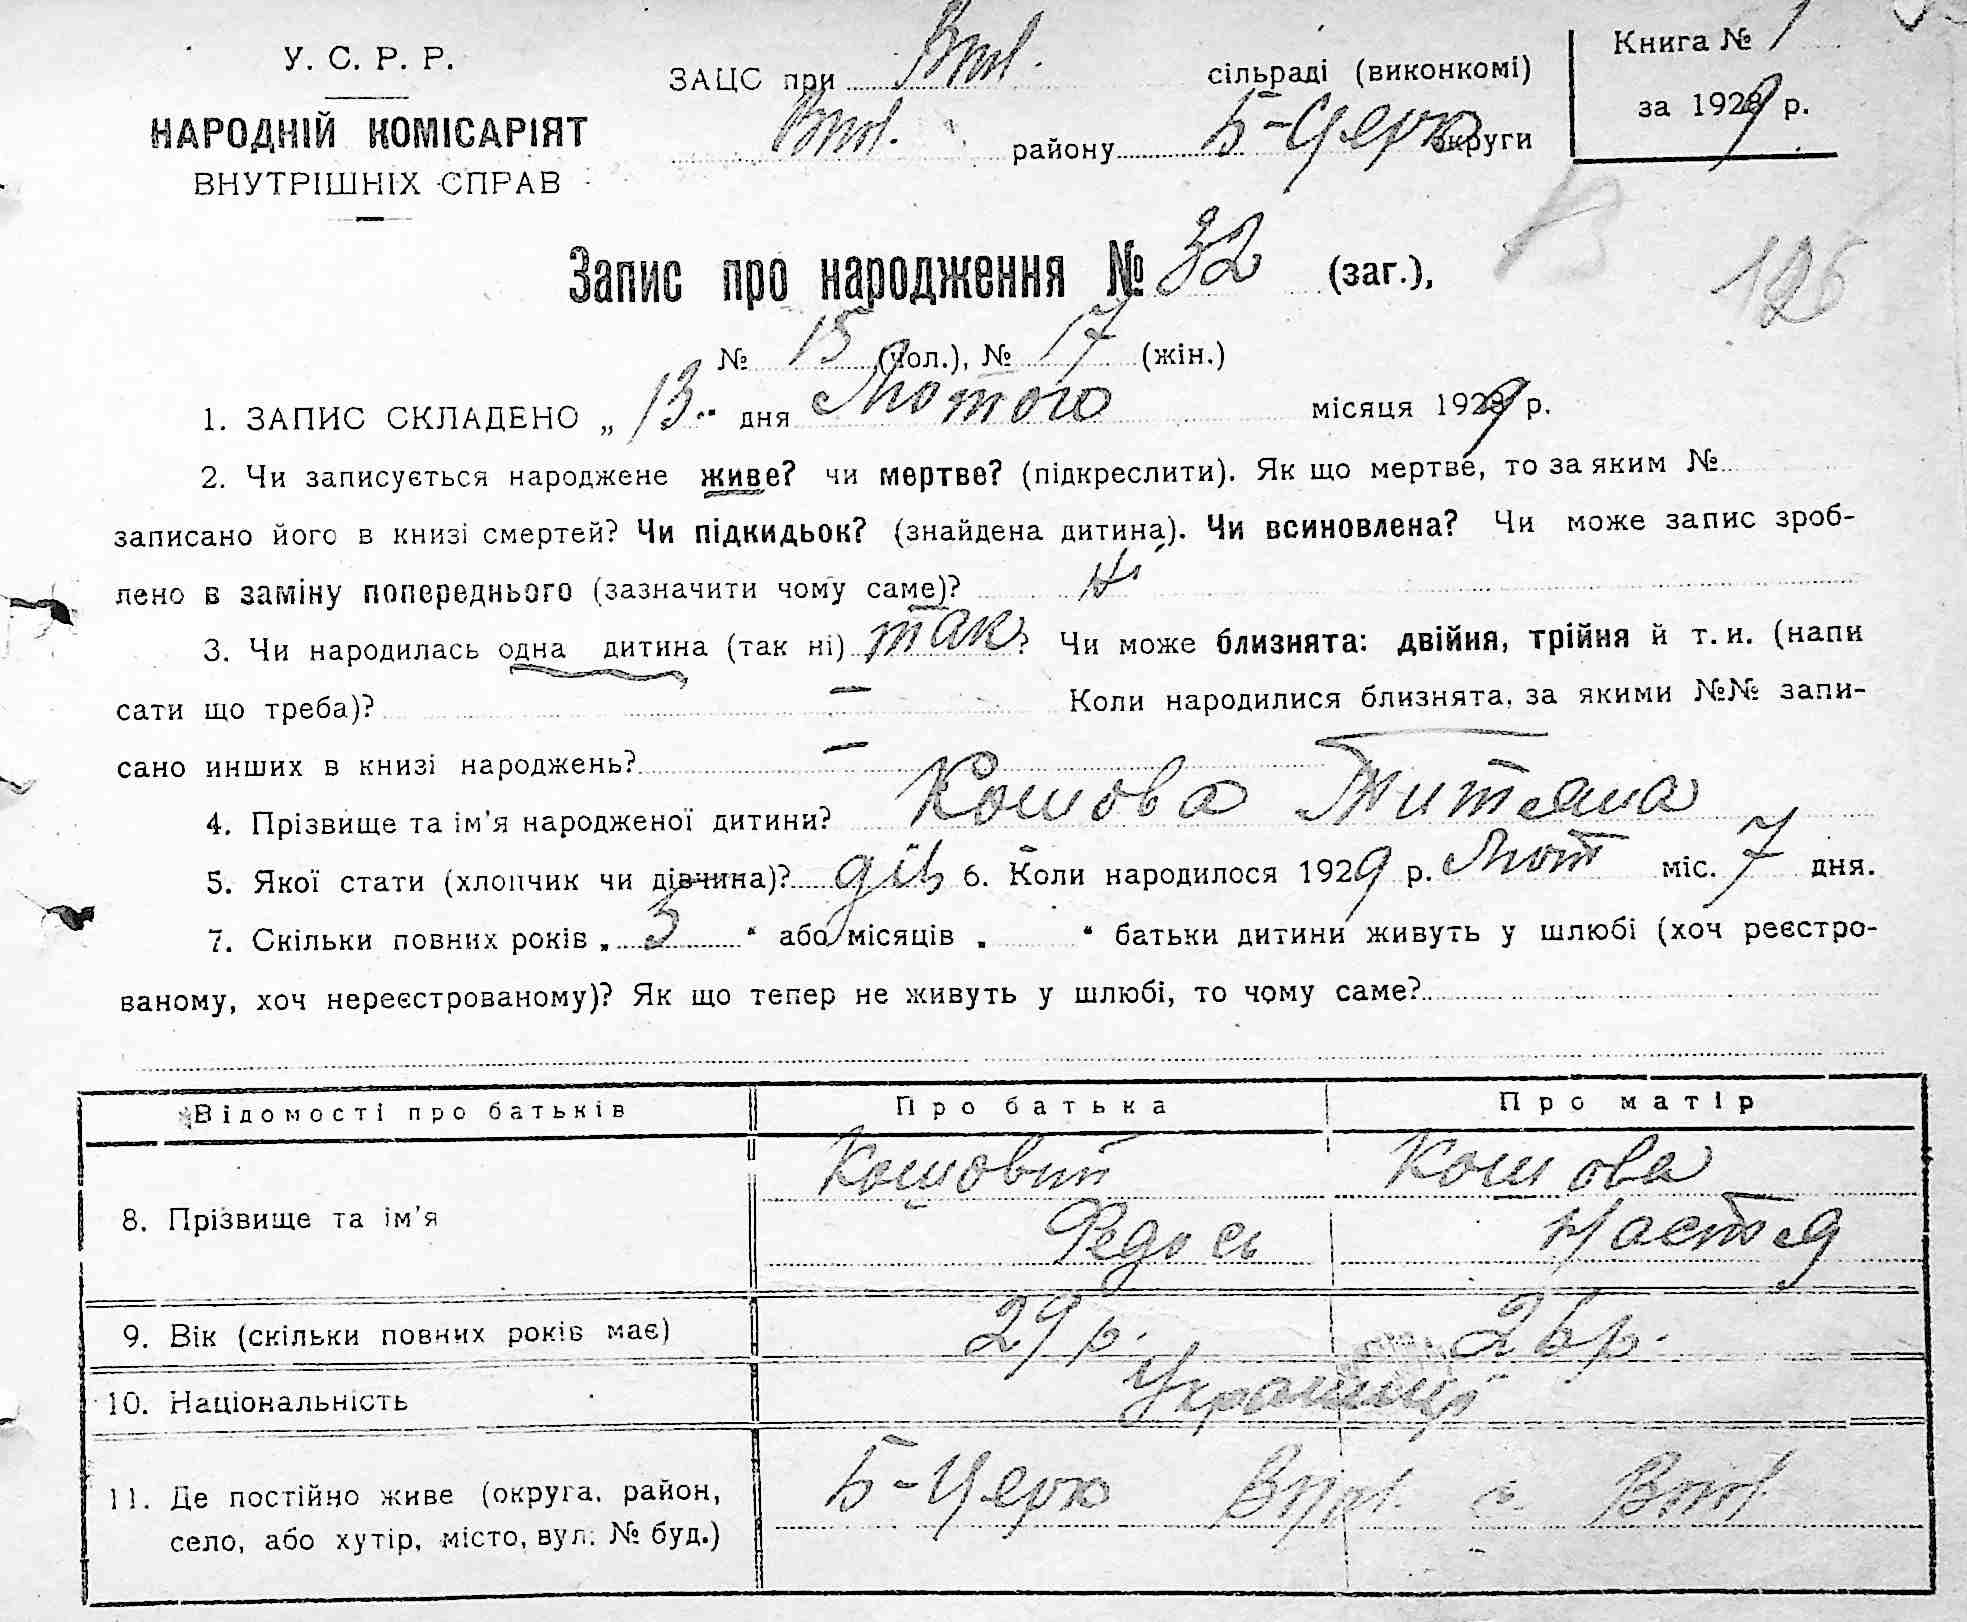 У. С. Р. Р.
НАРОДНІЙ КОМІСАРІЯТ
ВНУТРІШНІХ СПРАВ
ЗАЦС при сільраді (виконкомі)
району Б-Церк округи
Книга № 1
за 1929 р.
Запис про народження № 32 (заг.),
126
№ 15 (чол.), № 17 (жін.)
1. ЗАПИС СКЛАДЕНО „ 13 " дня Лютого місяця 1929 р.
2. Чи записується народжене живе? чи мертве? (підкреслити). Як що мертве, то за яким №
записано його в книзі смертей? Чи підкидьок? (знайдена дитина). Чи всиновлена? Чи може запис зроб-
лено в заміну попереднього (зазначити чому саме)? Ні
3. Чи народилась одна дитина (так ні) так? Чи може близнята: двійня, трійня й т. и. (напи
сати що треба)? — Коли народилися близнята, за якими №№ запи-
сано инших в книзі народжень? —
4. Прізвище та ім'я народженої дитини? Кошова Титяна
5. Якої стати (хлопчик чи дівчина)? дів 6. Коли народилося 1929 р. Лют міс. 7 дня.
7. Скільки повних років „ 3 " або місяців „ " батьки дитини живуть у шлюбі (хоч реєстро-
ваному, хоч нереєстрованому)? Як що тепер не живуть у шлюбі, то чому саме?
Відомості про батьків Про батька Про матір
8. Прізвище та ім'я Кошовий Кошова
Федось Настя
9. Вік (скільки повних років має) 29 р. 26 р.
10. Національність Українці
11. Де постійно живе (округа, район, Б-Церк с.
село, або хутір, місто, вул. № буд.)